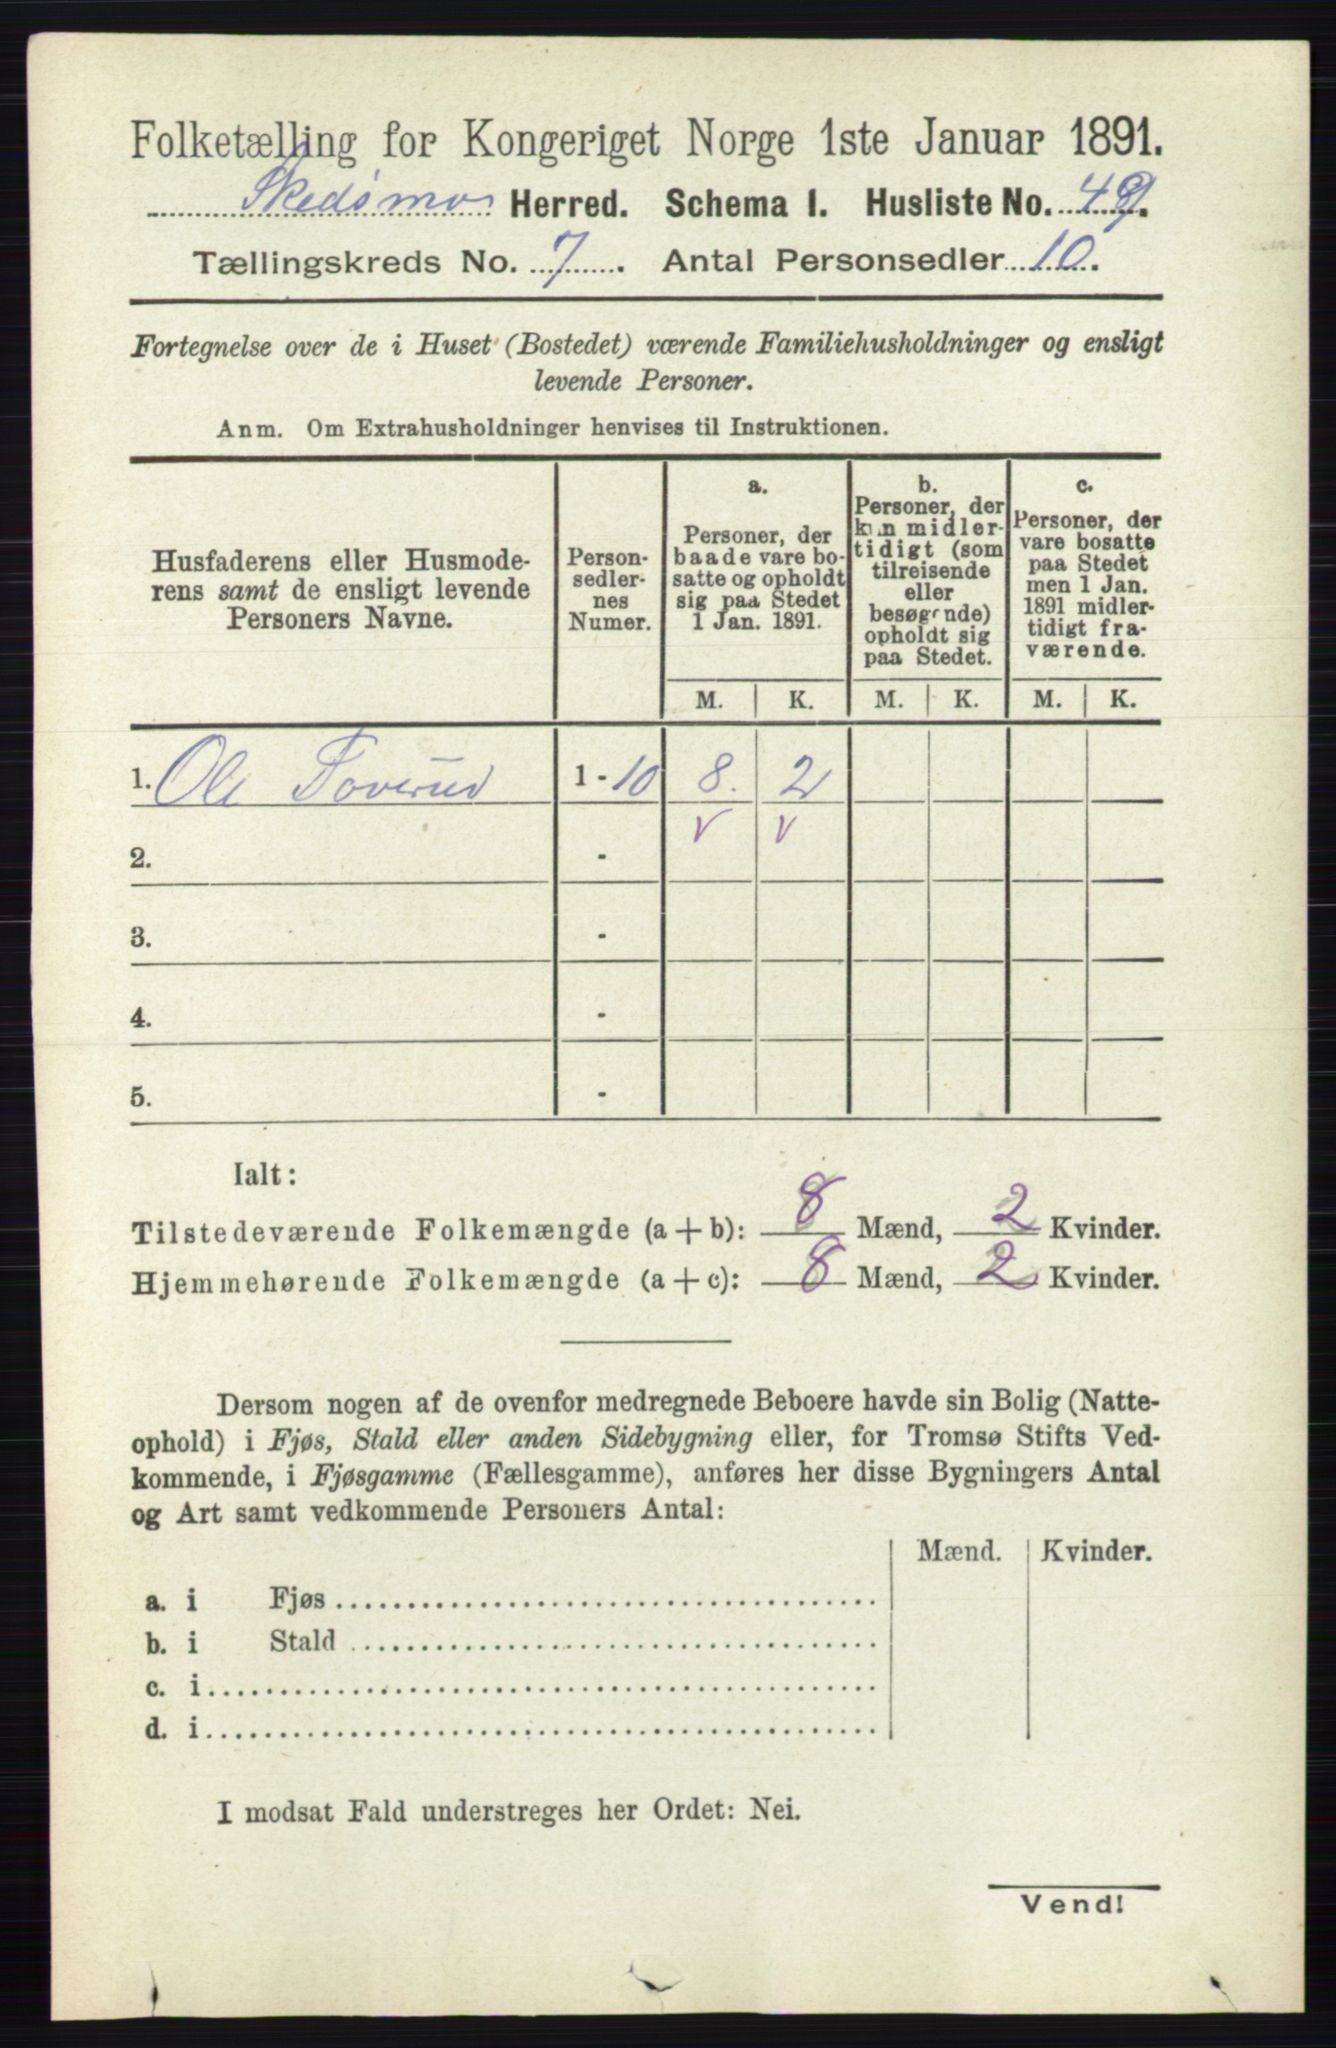 Folketælling for Kongeriget Norge 1ste Januar 1891.
Skedsmo Herred. Schema I. Husliste No. 49.
Tællingskreds No. 7. Antal Personsedler 10.
Fortegnelse over de i Huset (Bostedet) værende Familiehusholdninger og ensligt
levende Personer.
Anm. Om Extrahusholdninger henvises til Instruktionen.
Husfaderens eller Husmode-
rens samt de ensligt levende
Personers Navne.
Person-
sedler-
nes
Numer.
a.
Personer, der
baade vare bo-
satte og opholdt
sig paa Stedet
1 Jan. 1891.
b.
Personer, der
kun midler-
tidigt (som
tilreisende
eller
besøgende)
opholdt sig
paa Stedet.
c.
Personer, der
vare bosatte
paa Stedet
men 1 Jan.
1891 midler-
tidigt fra-
værende.
M. K. M. K. M. K.
1. Ole Toverud 1-10 8. 2
v v
2. -
3. -
4. -
5. -
Ialt:
Tilstedeværende Folkemængde (a + b): 8 Mænd, 2 Kvinder.
Hjemmehørende Folkemængde (a + c): 8 Mænd, 2 Kvinder.
Dersom nogen af de ovenfor medregnede Beboere havde sin Bolig (Natte-
ophold) i Fjøs, Stald eller anden Sidebygning eller, for Tromsø Stifts Ved-
kommende, i Fjøsgamme (Fællesgamme), anføres her disse Bygningers Antal
og Art samt vedkommende Personers Antal:
Mænd. Kvinder.
a. i Fjøs
b. i Stald
c. i
d. i
I modsat Fald understreges her Ordet: Nei.
Vend!